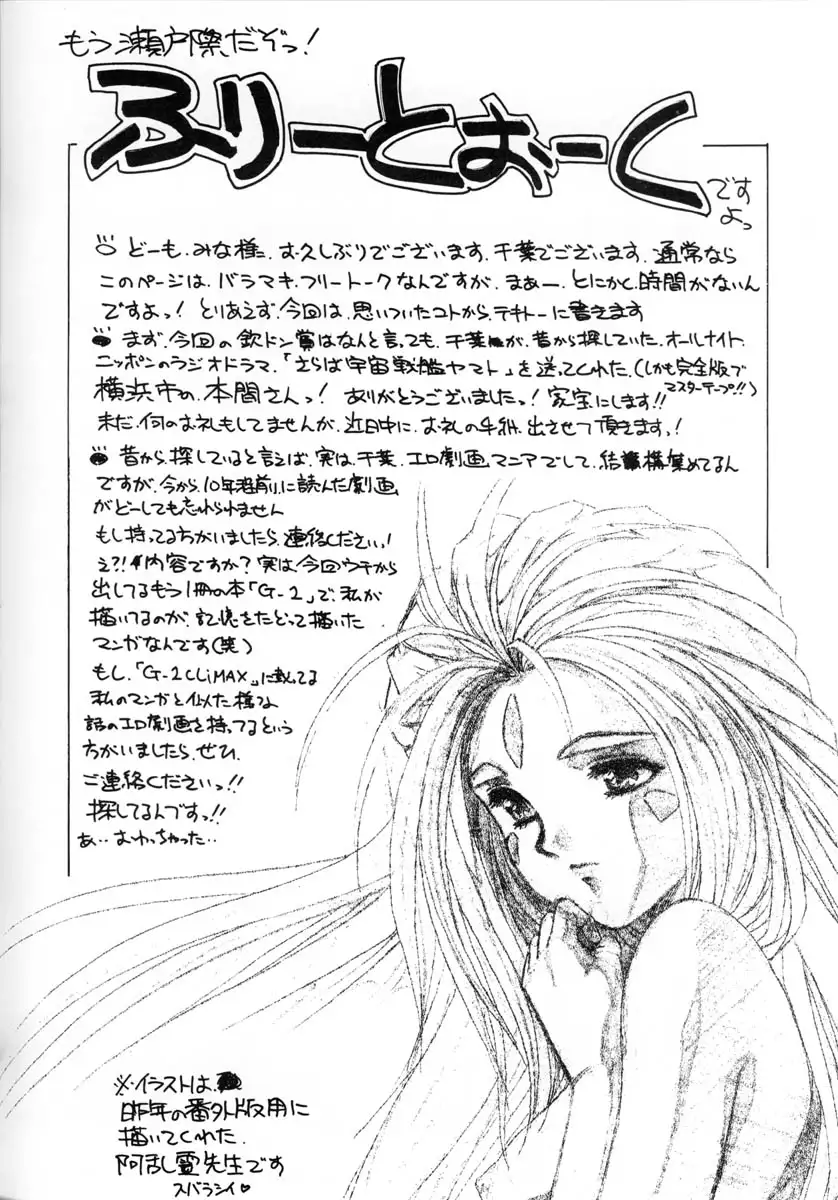 もう瀬戸際だぞっ!
ふりーとぉーく
ですよっ
どーも、みな様、お久しぶりでございます、千葉でございます、通常なら
このページは、バラマキ・フリートークなんですが、まぁー、とにかく、時間がないん
ですよっ! とりあえず、今回は、思いついたコトから、テキトーに書きます
まず、今回の欽ドン賞はなんと言っても、千葉が、昔から探していた、オールナイト
ニッポンのラジオドラマ、「さらば宇宙戦艦ヤマト」を送ってくれた、(しかも完全版で
マスターテープ!!)
横浜市の、本間さんっ! ありがとうございましたっ! 家宝にします!!
まだ、何のお礼もしてませんが、近日中に、お礼の手紙、出させて頂きますっ!
昔から、探していると言えば、実は、千葉、エロ劇画マニアでして、結構集めてるん
ですが、今から、10年程前に読んだ劇画
がどーしても忘れられません
もし持ってる方がいましたら、連絡ください!
え?! 内容ですか? 実は、今回ウチから
出してるもう1冊の本「G-2」で、私が
描いてるのが、記憶をたどって描いた
マンガなんです(笑)
もし、「G-2 CLiMAX」に載ってる
私のマンガと似た様な
話のエロ劇画を持ってるという
方がいましたら、ぜひ、
ご連絡くださいっ!!
探してるんですっ!!
あ‥おわっちゃった‥
※イラストは、
昨年の番外版用に
描いてくれた、
阿乱霊先生です
スバラシイ♡